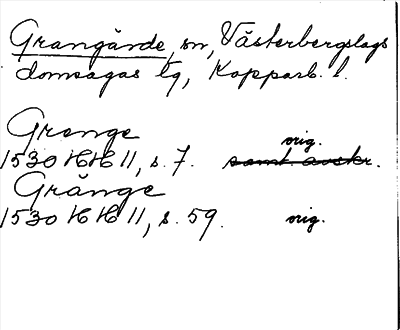 Grangärde, sn, Västerbergslags
domsagas tg, Kopparb. l.
Grenge
orig.
1530 HH 11, s. 7. samt. avskr.
Grănge
1530 HH 11, s. 59. orig.